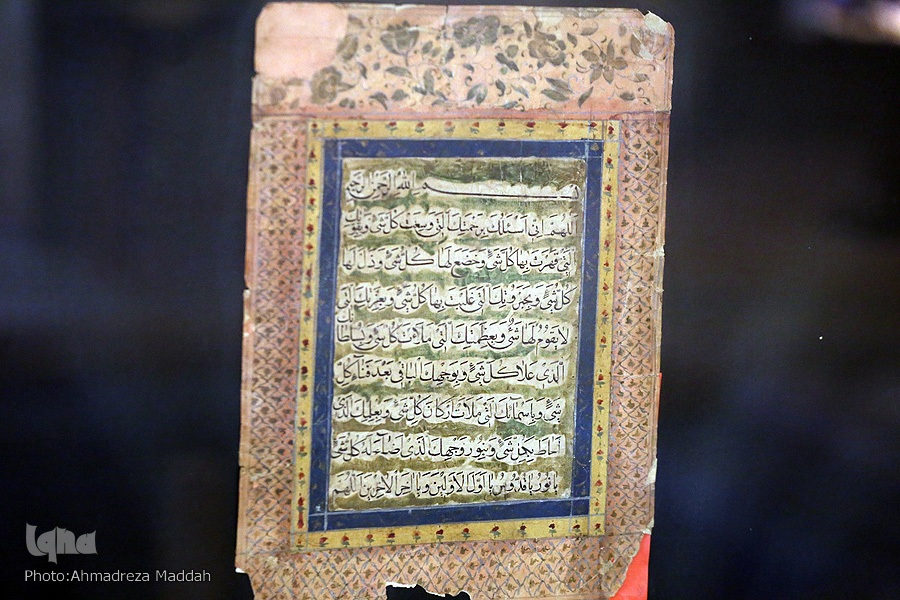 بسم الله الرحمن الرحيم
اللهم اني اسئلك برحمتك التي وسعت كل شئ وبقوتك
التي قهرت بها كل شئ وخضع لها كل شئ وذل لها
كل شئ وبجبروتك التي غلبت بها كل شئ وبعزتك التي
لا يقوم لها شئ وبعظمتك التي ملات كل شئ وبسلطانك
الذي علا كل شئ وبوجهك الباقي بعد فناء كل
شئ وباسمائك التي ملات اركان كل شئ وبعلمك الذي
احاط بكل شئ وبنور وجهك الذي اضاء له كل شئ
يا نور يا قدوس يا اول الاولين ويا اخر الاخرين اللهم
iqna
Photo:Ahmadreza Maddah